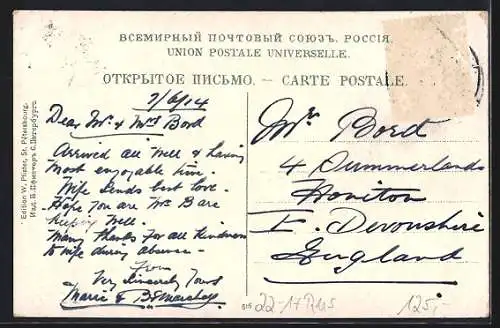 ВСЕМІРНЫЙ ПОЧТОВЫЙ СОЮЗЪ. РОССІЯ.
UNION POSTALE UNIVERSELLE.
ОТКРЫТОЕ ПИСЬМО. – CARTE POSTALE.
7/6/14
Dear Mr & Mrs Bord
Arrived all well & having
Most enjoyable time.
Wife sends best love.
Hope you are Mrs B are
keeping well.
Many thanks for all kindness
to wife during absence –
From
Very Sincerely Yours
Marie &
Mr Bord
4 Summerlands
Honiton
E. Devonshire
England
Edition W. Pfister, St. Pétersbourg.
22-17R45
125,-